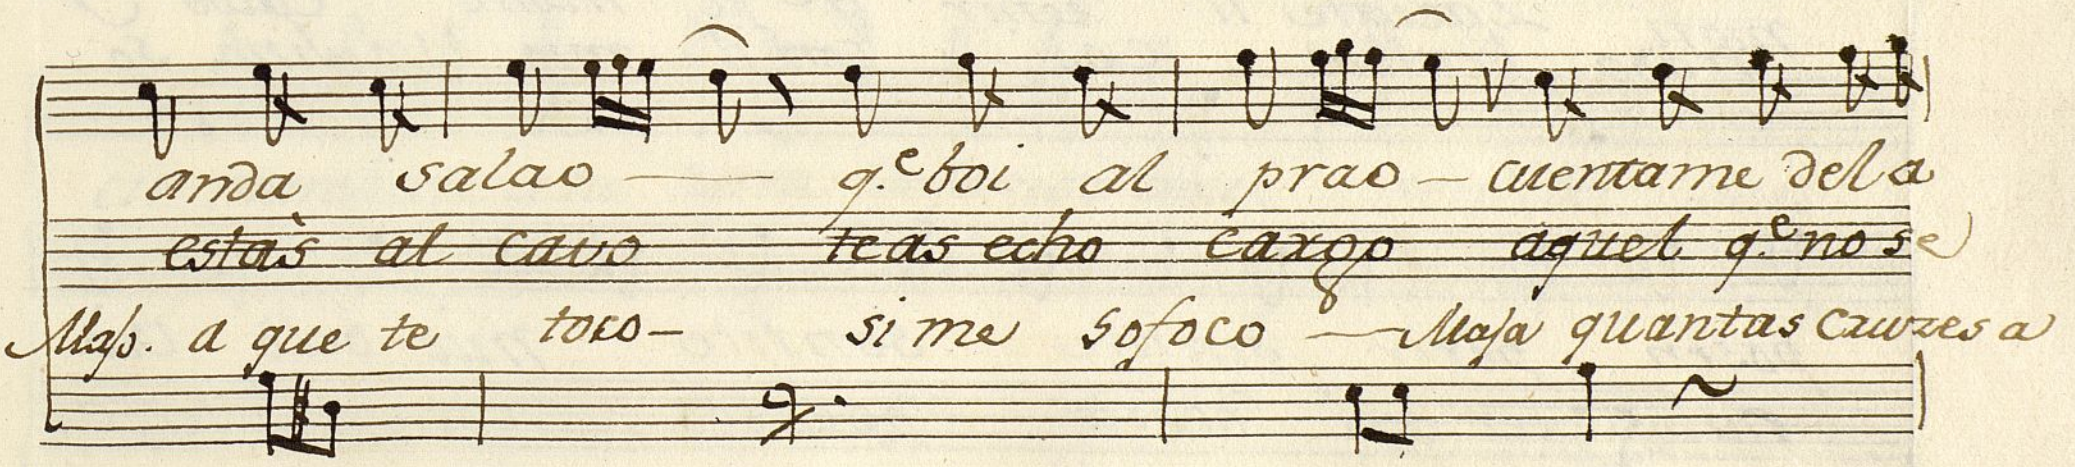 anda salao — q.e boi al prao — cuentame dela
estàs al cavo te as echo cargo aquel q.e no se
Majo. a que te toco — si me sofoco — Maja quantas cruzes a